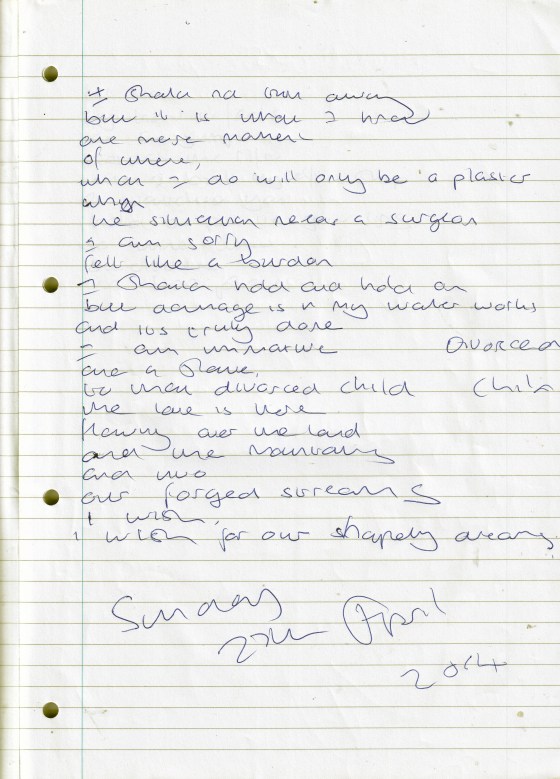 I should not run away
but it is what I need
are mere matters
of where,
what I do will only be a plaster
when
the situation needs a surgeon
I am sorry
felt like a burden
I should hold and hold on
but damage is in my water works
and its truly done
I am
are a
to that divorced child
Divorced
Child
the love is here
flowing over the land
and the mountains
and into
our forged streams
I wish,
I wish for our shapely dreams
Sunday
27th April
2014